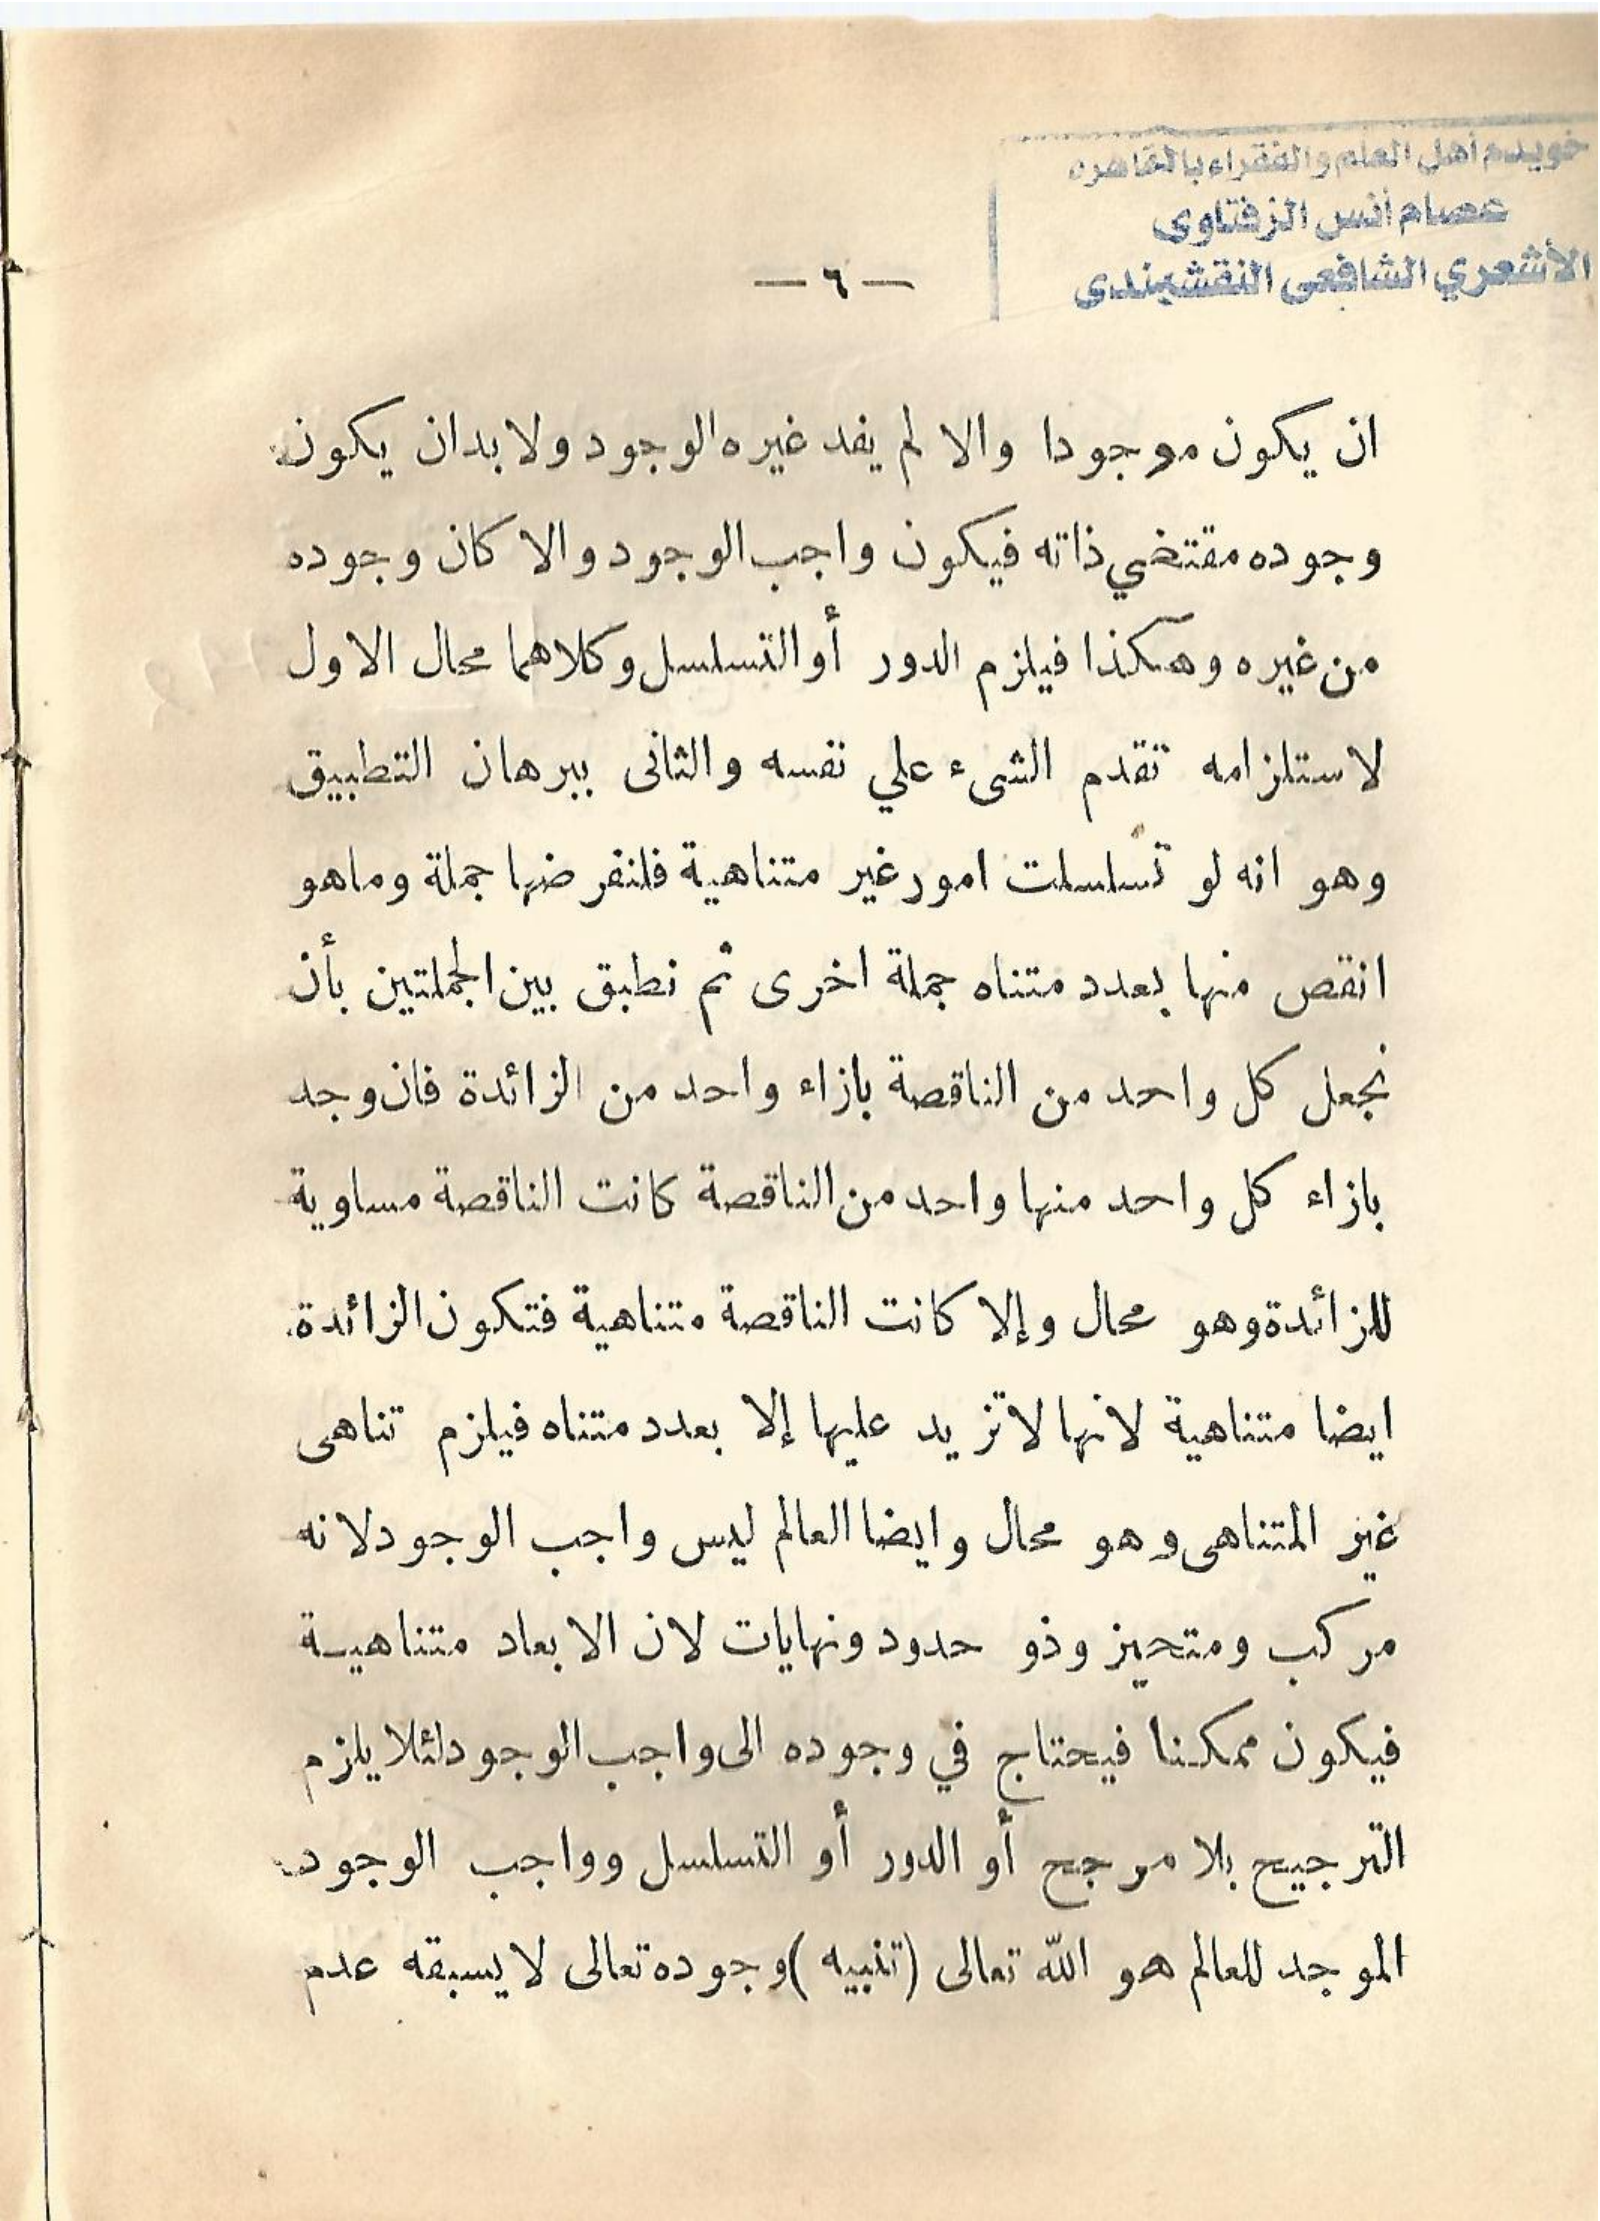 خويدم أهل العلم والفقراء بالقاهره
عصام أنس الزفتاوى
الأشعري الشافعى النقشبندى
— ٦ —
ان يكون موجودا والا لم يفد غيره الوجود ولا بد ان يكون
وجوده مقتضي ذاته فيكون واجب الوجود والا كان وجوده
من غيره وهكذا فيلزم الدور أو التسلسل وكلاهما محال الاول
لاستلزامه تقدم الشىء علي نفسه والثانى ببرهان التطبيق
وهو انه لو تسلسلت امور غير متناهية فلنفرضها جملة وماهو
انقص منها بعدد متناه جملة اخرى ثم نطبق بين الجملتين بأن
نجعل كل واحد من الناقصة بازاء واحد من الزائدة فان وجد
بازاء كل واحد منها واحد من الناقصة كانت الناقصة مساوية
للزائدة وهو محال وإلا كانت الناقصة متناهية فتكون الزائدة
ايضا متناهية لانها لا تزيد عليها إلا بعدد متناه فيلزم تناهى
غير المتناهى وهو محال وايضا العالم ليس واجب الوجود لانه
مركب ومتحيز وذو حدود ونهايات لان الابعاد متناهية
فيكون ممكنا فيحتاج في وجوده الى واجب الوجود لئلا يلزم
الترجيح بلا مرجح أو الدور أو التسلسل وواجب الوجود
الموجد للعالم هو الله تعالى (تنبيه) وجوده تعالى لا يسبقه عدم